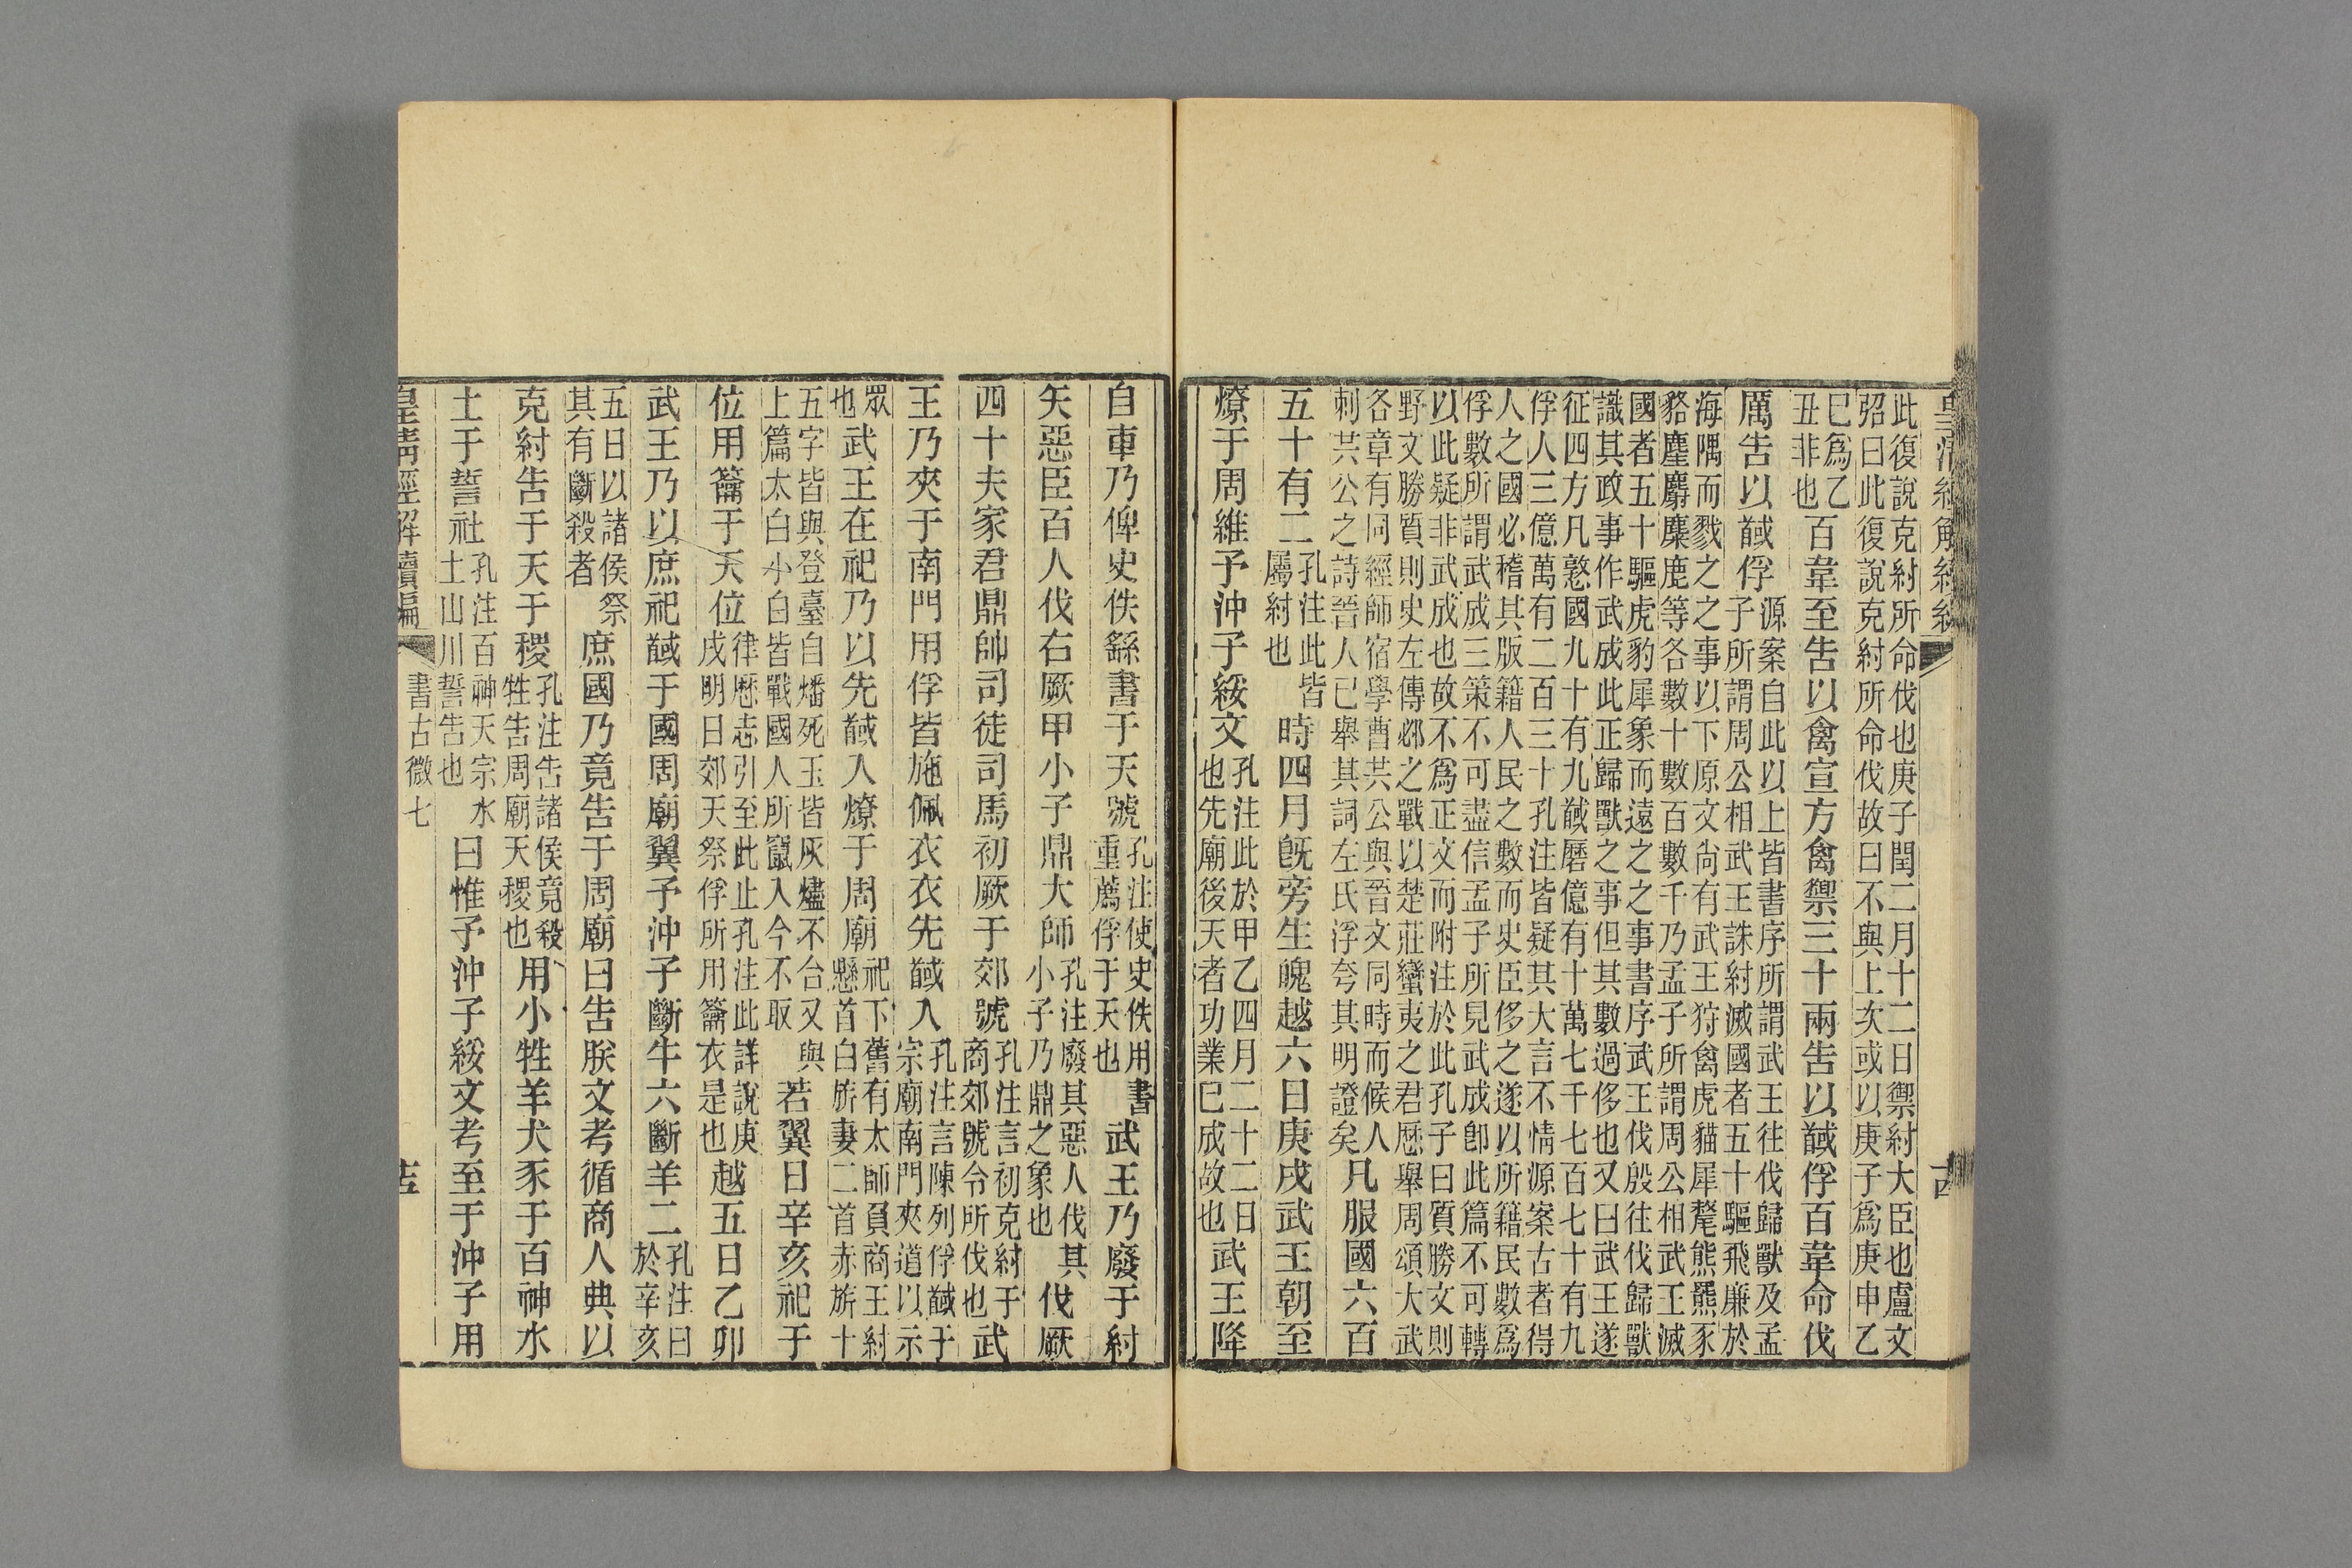 皇清經解續編
十四
此復說克紂所命伐也庚子閏二月十二日禦紂大臣也盧文
弨曰此復說克紂所命伐故曰不與上次或以庚子爲庚申乙
巳爲乙丑非也百韋至告以禽宣方禽禦三十兩告以馘俘百韋命伐
厲告以馘俘源案自此以上皆書序所謂武王往伐歸獸及孟
子所謂周公相武王誅紂滅國者五十驅飛廉於
海隅而戮之之事以下原文尚有武王狩禽虎貓犀氂熊羆豕
貉塵麝麋鹿等各數十數百數千乃孟子所謂周公相武王滅
國者五十驅虎豹犀象而遠之之事書序武王伐殷往伐歸獸
識其政事作武成此正歸獸之事但其數過侈也又曰武王遂
征四方凡憝國九十有九馘磿億有十萬七千七百七十有九
俘人三億萬有二百三十孔注皆疑其大言不情源案古者得
人之國必稽其版籍人民之數而史臣侈之遂以所籍民數爲
俘數所謂武成三策不可盡信孟子所見武成卽此篇不可轉
以此疑非武成也故不爲正文而附注於此孔子曰質勝文則
野文勝質則史左傳邲之戰以楚莊蠻夷之君歷舉周頌大武
各章有同經師宿學曹共公與晉文同時而候人
刺共公之詩晉人已舉其詞左氏浮夸其明證矣凡服國六百
五十有二孔注此皆屬紂也時四月旣旁生魄越六日庚戌武王朝至
燎于周維予沖子綏文孔注此於甲乙四月二十二日也先廟後天者功業已成故也武王降
自車乃俾史佚繇書于天號孔注使史佚用書重薦俘于天也武王乃廢于紂
矢惡臣百人伐右厥甲小子鼎大師孔注廢其惡人伐其小子乃鼎之象也伐厥
四十夫家君鼎帥司徒司馬初厥于郊號孔注言初克紂于商郊號令所伐也武
王乃夾于南門用俘皆施佩衣衣先馘入孔注言陳列俘馘于宗廟南門夾道以示
眾也武王在祀乃以先馘入燎于周廟祀下舊有太師負商王紂懸首白旂妻二首赤旂十
五字皆與登臺自燔死玉皆灰燼不合又與上篇太白小白皆戰國人所竄入今不取若翼日辛亥祀于
位用籥于天位律歷志引至此止孔注此詳說庚戌明日郊天祭俘所用籥衣是也越五日乙卯
武王乃以庶祀馘于國周廟翼予沖子斷牛六斷羊二孔注曰於辛亥
五日以諸侯祭其有斷殺者庶國乃竟告于周廟曰告朕文考循商人典以
克紂告于天于稷孔注告諸侯竟殺牲告周廟天稷也用小牲羊犬豕于百神水
土于誓社孔注百神天宗水土山川誓告也曰惟予沖子綏文考至于沖子用
皇清經解續編
書古微七